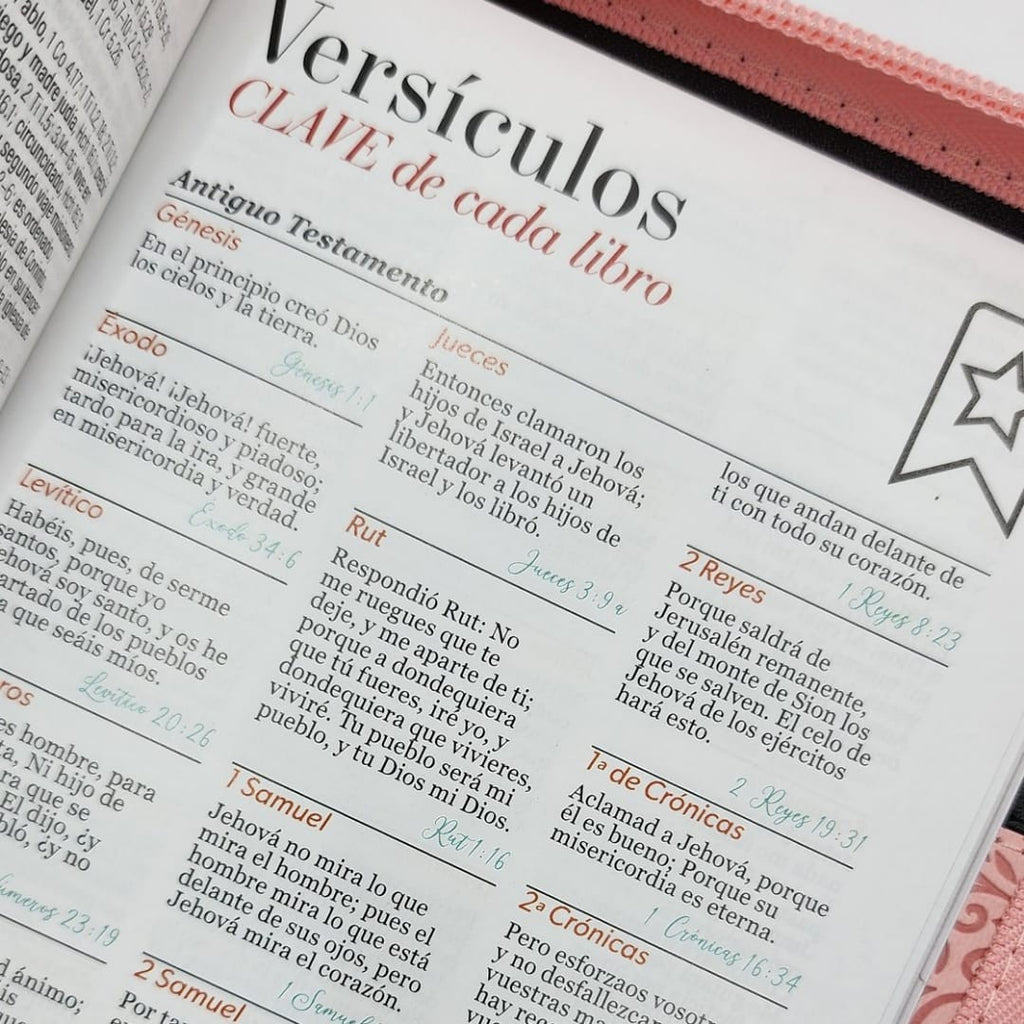 Versículos
CLAVE de cada libro
Antiguo Testamento
Génesis
En el principio creó Dios
los cielos y la tierra.
Génesis 1:1
Éxodo
¡Jehová! ¡Jehová! fuerte,
misericordioso y piadoso;
tardo para la ira, y grande
en misericordia y verdad.
Éxodo 34:6
Levítico
Habéis, pues, de serme
santos, porque yo
Jehová soy santo, y os he
apartado de los pueblos
para que seáis míos.
Levítico 20:26
hombre, para
Ni hijo de
que se
El dijo, ¿y
¿y no
Números 23:19
ánimo;
Jueces
Entonces clamaron los
hijos de Israel a Jehová;
y Jehová levantó un
libertador a los hijos de
Israel y los libró.
Jueces 3:9 a
Rut
Respondió Rut: No
me ruegues que te
deje, y me aparte de ti;
porque a dondequiera
que tú fueres, iré yo, y
dondequiera que vivieres,
viviré. Tu pueblo será mi
pueblo, y tu Dios mi Dios.
Rut 1:16
1 Samuel
Jehová no mira lo que
mira el hombre; pues el
hombre mira lo que está
delante de sus ojos, pero
Jehová mira el corazón.
1 Samuel
2 Samuel
Por
los que andan delante de
ti con todo su corazón.
1 Reyes 8:23
2 Reyes
Porque saldrá de
Jerusalén remanente,
y del monte de Sion los
que se salven. El celo de
Jehová de los ejércitos
hará esto.
2 Reyes 19:31
1ª de Crónicas
Aclamad a Jehová, porque
él es bueno; Porque su
misericordia es eterna.
1 Crónicas 16:34
2ª Crónicas
Pero esforzaos vosotros
y no desfallezcan
vuestras
hay